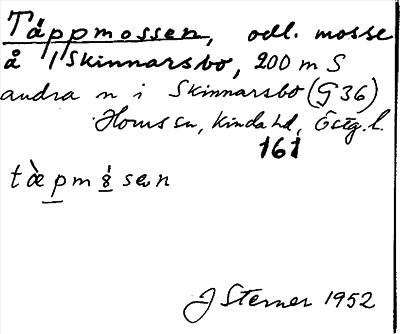 Täppmossen, odl. mosse
å 1 Skinnarsbo, 200 m S
andra n i Skinnarsbo (G 36)
Horns sn, Kinda hd, Östg. l.
161
tæ̀pmȣ́sen
J Sterner 1952